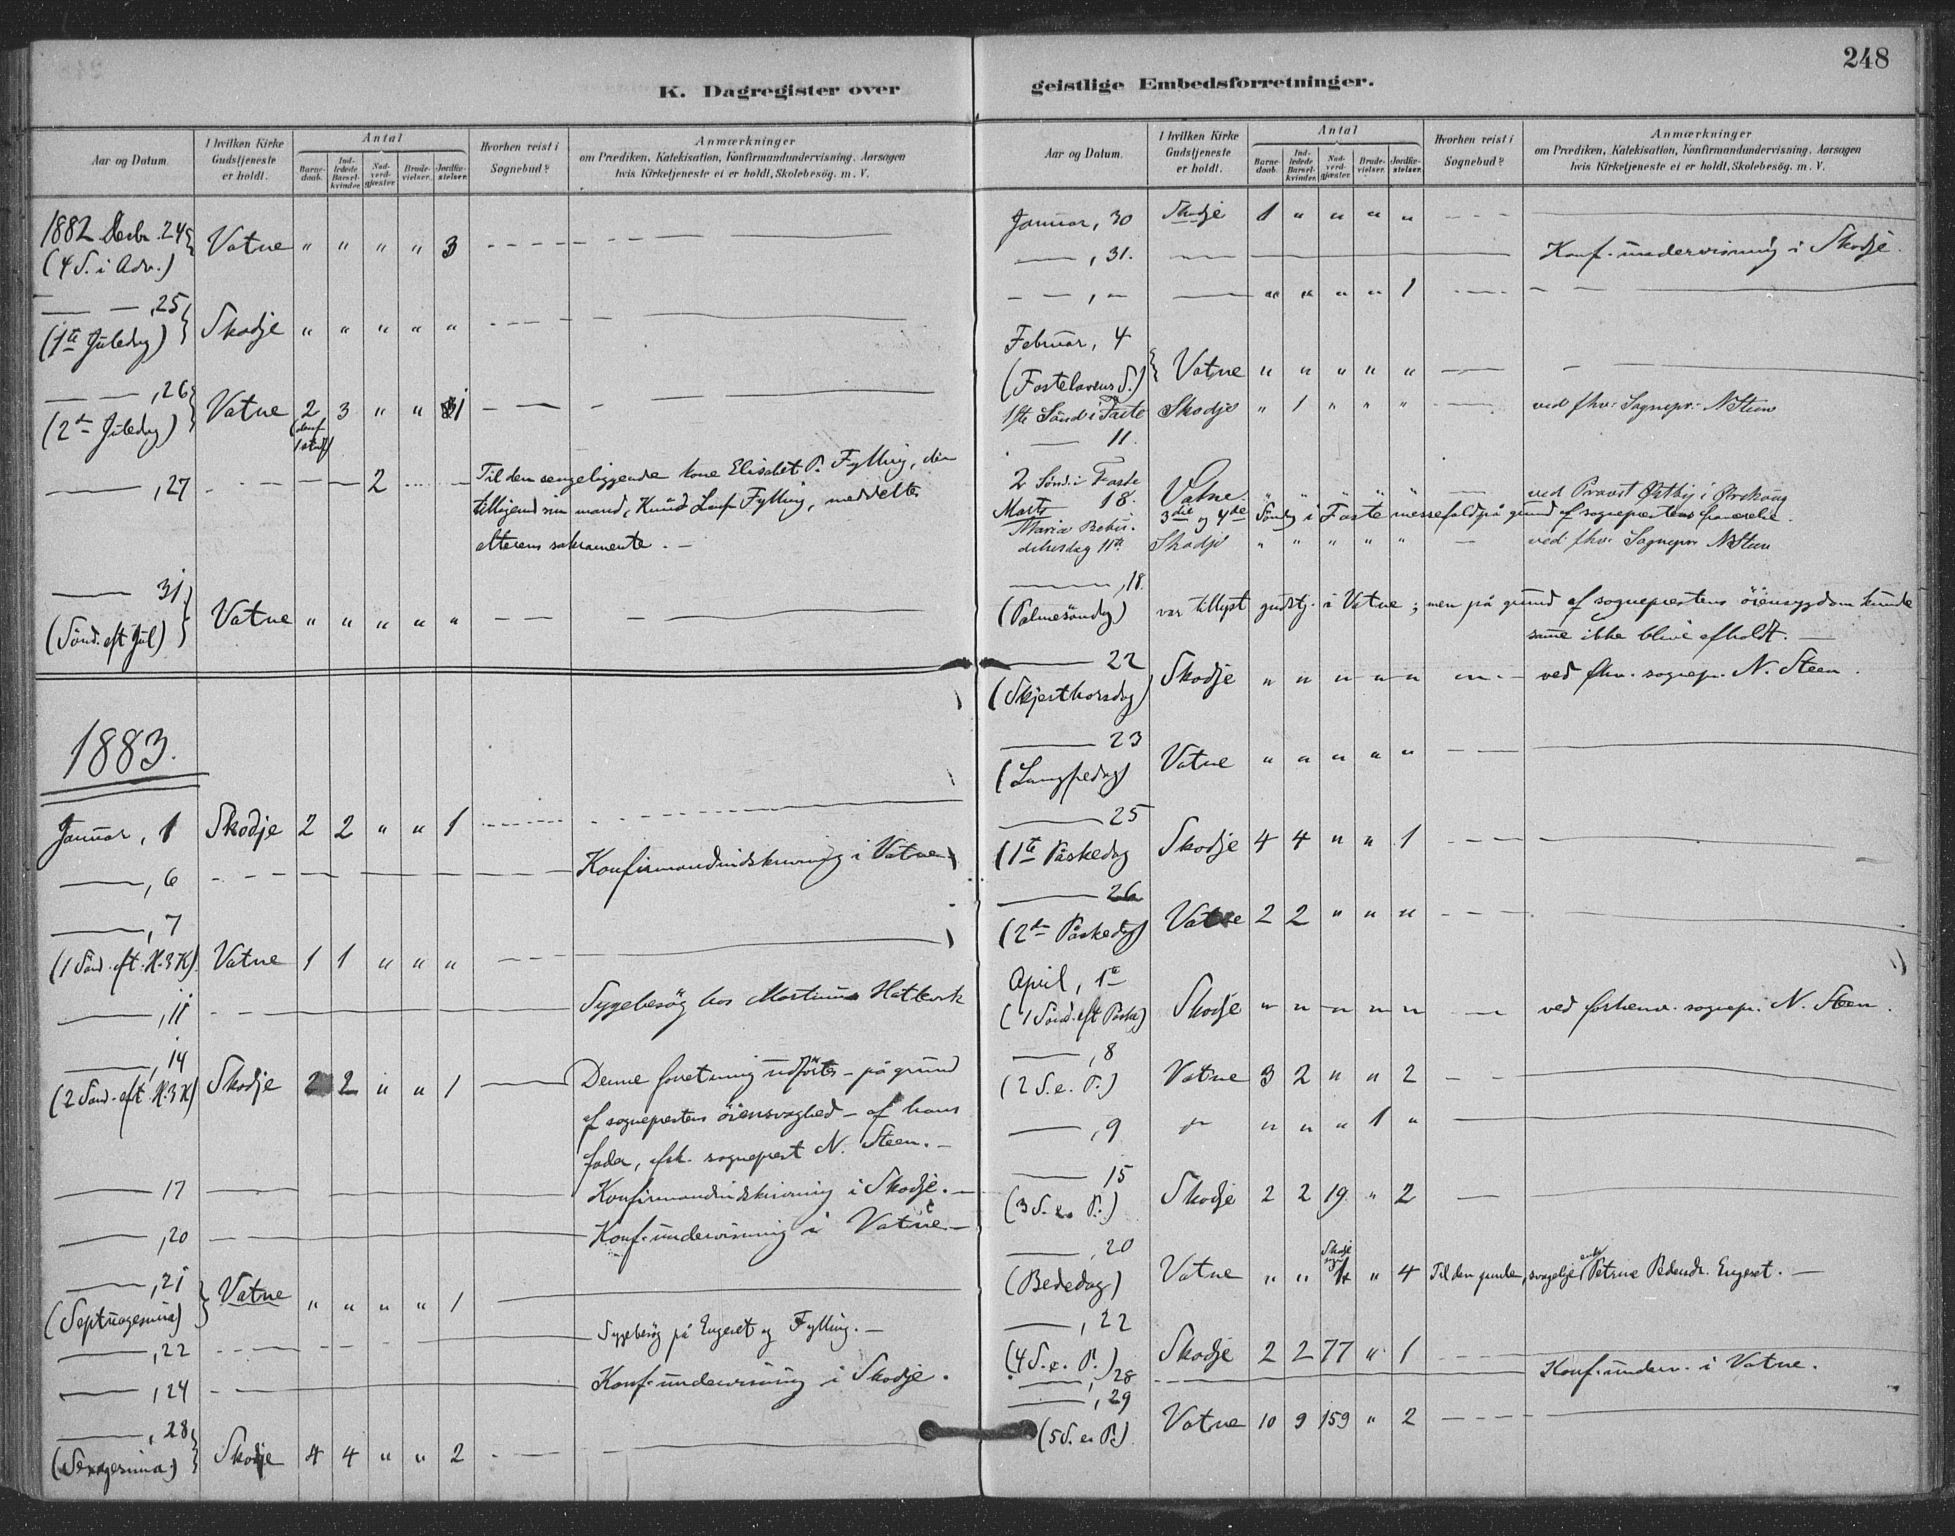 248
K. Dagregister over
geistlige Embedsforretninger.
Aar og Datum.
I hvilken Kirke Gudstjeneste er holdt.
Antal
Barne-daab.
Ind-ledede Barsel-kvinder.
Nad-verd-gjæster.
Brude-vielser.
Jordfæ-stelser.
Hvorhen reist i Sognebud?
Anmærkninger
om Prædiken, Katekisation, Konfirmandundervisning. Aarsagen
hvis Kirketjeneste ei er holdt, Skolebesøg. m. V.
1882 Decbr. 24
(4 S. i Adv.) Vatne " " " " 3
— — , 25
(1te Juledag) Skodje " " " " "
— — , 26
(2den Juledag) Vatne 2 3 " "
— , 27 2 Til den sengeliggende kone Elisabet P. Fylling, der
tilligemed sin mand, Knud Fylling, meddeltes
alterens sakramente. —
— 31
(Sönd. eft Jul) Vatne " " " " "
1883.
Januar, 1 Skodje 2 2 " " 1
— , 6 Konfirmandindskrivning i Vatne
— , 7
(1 Sönd. eft. H. 3 K) Vatne 1 1 " " "
— , 11 Sygebesög hos Martinus Hatlevik
— , 14
(2 Sönd. eft H. 3 K) Skodje 2 2 " " 1 Denne forretning udförtes – på grund
af sognepræstens öiensvaghed – af hans
fader, sognepræst N. Steen. —
— 17 Konfirmandindskrivning i Skodje. —
— , 20 Konf. undervisning i Vatne —
— , 21
(Septuagesima) Vatne " " " " 1
— , 22 Sygebesög på Engeset og Fylling. —
— , 24 Konf. undervisning i Skodje.
— , 28
(Sexagesima) Skodje 4 4 " " 2
Aar og Datum.
I hvilken Kirke Gudstjeneste er holdt.
Antal
Barne-daab.
Ind-ledede Barsel-kvinder.
Nad-verd-gjæster.
Brude-vielser.
Jordfæ-stelser.
Hvorhen reist i Sognebud?
Anmærkninger
om Prædiken, Katekisation, Konfirmandundervisning. Aarsagen
hvis Kirketjeneste ei er holdt, Skolebesøg. m. V.
Januar, 30 Skodje 1 " " " "
— , 31. Konf. undervisning i Skodje.
— — , — " " " " 1
Februar, 4
(Fastelavens S.) Vatne " " " " "
1ste Sönd i Faste Skodje " 1 " " " ved fhv. Sognepr. N Steen
— 11.
2 Sönd. i Faste
18. Vatne " " " " " ved Provst Østbye i Ørskoug
Marts 3die og 4de Söndag i Faste messefald på grund af sognepræstens fraværelse.
Maria Bebu-
delsesdag 11te Skodje " " " " " ved fhv. Sognepr. N Steen
— , 18.
(Palmesöndag) var tillyst gudstj. i Vatne; men på grund af sognepræstens öiensygdom kunde
samme ikke blive afholdt. —
— 22
(Skjærthorsdag) Skodje " " " " " ved fhv. sognepr. N. Steen.
— 23
(Langfredag) Vatne " " " " "
— 25
(1te Påskedag Skodje 4 4 " " 1
— 26
(2den Påskedag) Vatne 2 2 " " "
April, 1te
(1 Sönd. eft Påske) Skodje " " " " " ved forhenv. sognepr. N. Steen.
— , 8
(2 S. e. P.) Vatne 3 2 " " 2
— , 9 " " " 1 "
— 15
(3 S. e. P.) Skodje 2 2 19 " 2
— , 20
(Bededag) Vatne " " " 4 Til den gamle, svagelige enke Petrine Pedersdr. Engeset. —
— , 22
(4 S. e. P.) Skodje 2 2 77 " 1
— , 28 Konf. underv. i Vatne.
— , 29
(5 S. e. P.) Vatne 10 9 159 " 2